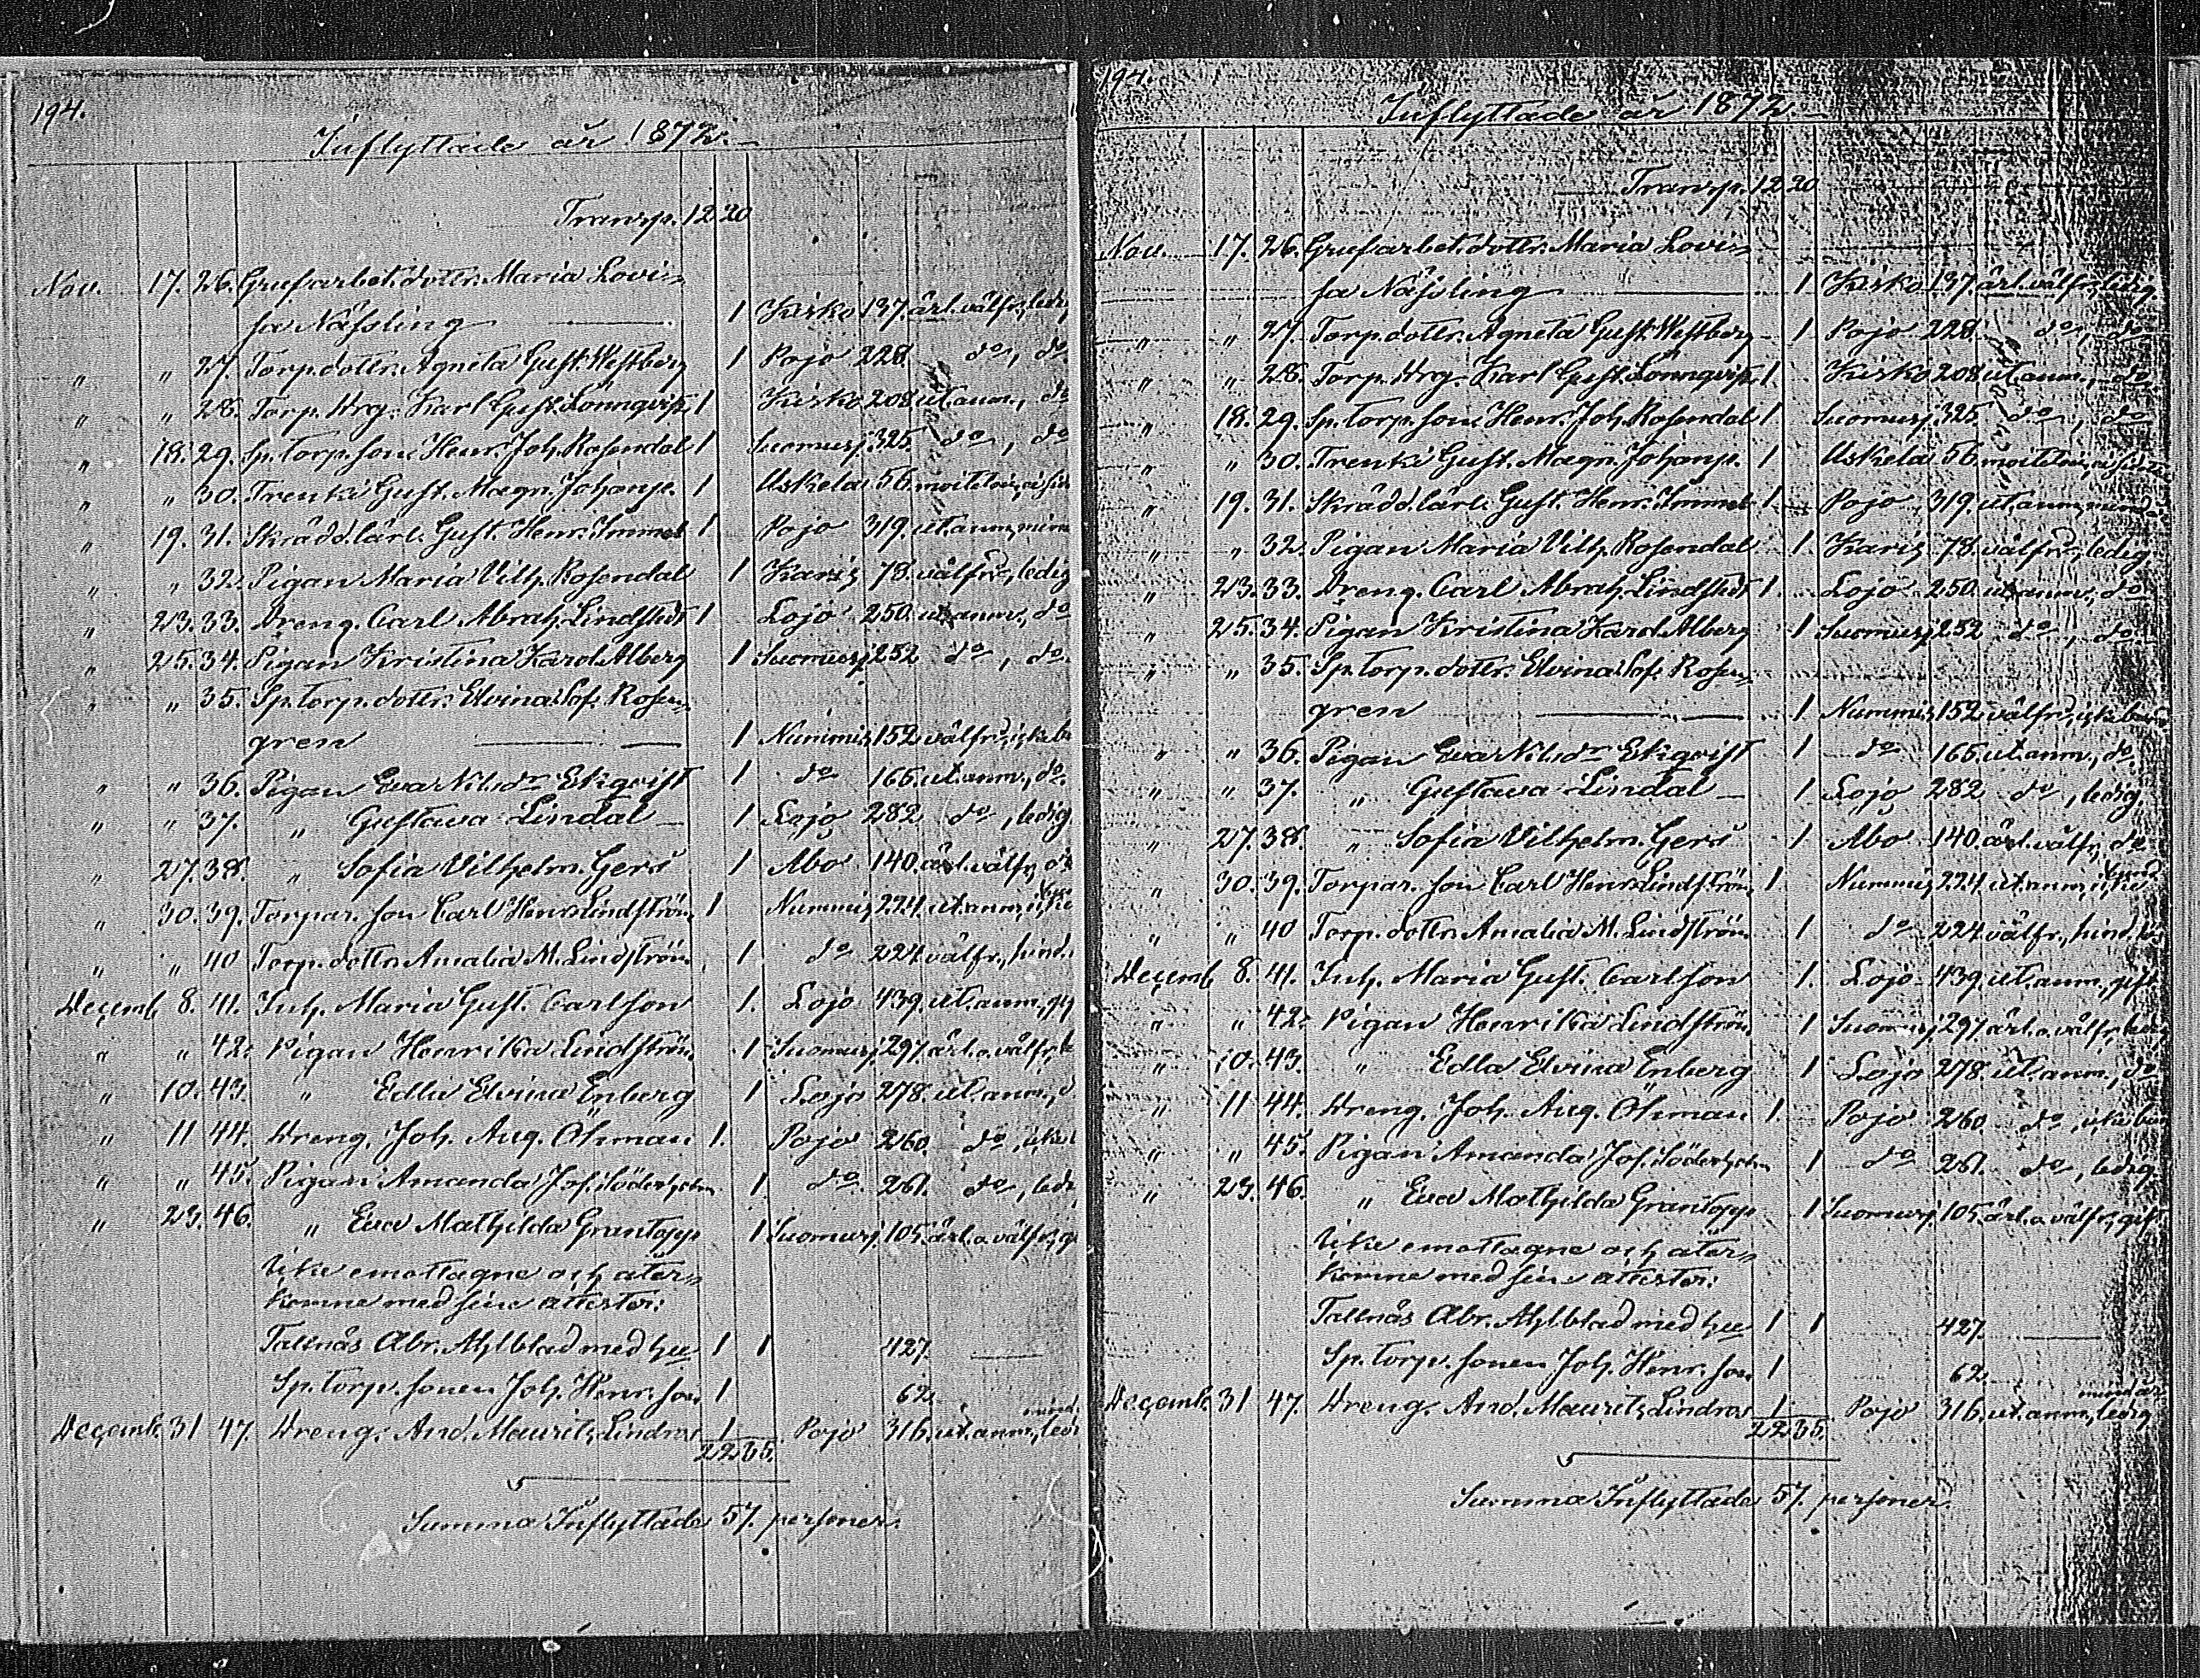 194.
Inflyttade år 1872.
Transp. 12 20
Nov. 17. 26. Grufarbet. dottr. Maria Lovi-
sa Nässling 1 Kisko 137. ärl. välfr., led
" " 27. Torp. dottr. Agneta Gust. Westberg 1 Pojo 228. do, do
" " 28. Torp. drg. Karl Gust. Lönnqvist 1 Kisko 208 ut. anm., do
" 18. 29. Sp. torp. son Henr. Joh. Rosendal 1 Suomusj. 325. do, do
" " 30. Trenki Gust. Magn. Johansp. 1 Uskela 56.
" 19. 31. Skrädd. lärl. Gust. Henr. Immel 1 Pojo 319. ut. anm.
" " 32. Pigan Maria Vilh. Rosendal 1 Karis 78. välfrd., ledig
" 23. 33. Dreng. Carl Abrah. Lindstedt 1 Lojo 250. ut. anm., do
" 25. 34. Pigan Kristina Karol. Alberg 1 Suomusj 252 do, do.
" " 35. Sp. torp. dottr. Elvina Sof. Rosen-
gren 1 Nummis 152 välfrd., icke be
" " 36. Pigan Eva Nilsdr Ekqvist 1 do 165. ut. anm., do.
" " 37. " Gustava Lindal 1 Lojo 282 do, ledig
" 27. 38. " Sofia Vilhelm. Gers 1 Abo 140. ärl. välfr,
" 30. 39. Torpar. son Carl Henr. Lindström 1 Nummis 224. ut. anm.,
" " 40 Torp. dottr. Amalia M. Lindström 1 do 224. välfr., hind.
Decemb 8. 41. Inh. Maria Gust. Carlson 1. Lojo 439. ut. anm.,
" " 42. Pigan Henrika Lindström 1 Suomusj. 297. ärl. o. välfr.,
" 10. 43. " Edla Elvina Enberg 1 Lojo 278. ut. anm.,
" 11 44. Dreng. Joh. Aug. Öhman 1. Pojo 260. do, icke
" " 45. Pigan Amanda Jos. Söderholm 1 do. 261. do, led
" 23. 46. " Eva Mathilda Grantopp 1 Suomusj. 105. ärl. o. välfr.,
Icke emottagne och åter-
komne med sine attester:
Tallnäs Abr. Ahlblad med hu 1 1 427.
Sp. torp. sonen Joh. Henr. son 1 62.
mind.
Decemb. 31 47. Dreng. And. Maurits Lindros 1 Pojo 316. ut. anm., ledi
22 35.
Summa Inflyttade 57. personer.
194.
Inflyttade år 1872.
Transp. 12 20
Nov. 17. 26. Grufarbet. dottr. Maria Lovi-
sa Nässling 1 Kisko 137. ärl. välfr., ledig.
" " 27. Torp. dottr. Agneta Gust. Westberg 1 Pojo 228. do, do
" " 28. Torp. drg. Karl Gust. Lönnqvist 1 Kisko 208 ut. anm., do
" 18. 29. Sp. torp. son Henr. Joh. Rosendal 1 Suomusj. 325. do, do
" " 30. Trenki Gust. Magn. Johansp. 1 Uskela 56.
" 19. 31. Skrädd. lärl. Gust. Henr. Immel 1 Pojo 319. ut. anm.
" " 32. Pigan Maria Vilh. Rosendal 1 Karis 78. välfrd., ledig
" 23. 33. Dreng. Carl Abrah. Lindstedt 1. Lojo 250. ut. anm., do
" 25. 34. Pigan Kristina Karol. Alberg 1 Suomusj 252 do, do.
" " 35. Sp. torp. dottr. Elvina Sof. Rosen-
gren 1 Nummis 152 välfrd., icke
" " 36. Pigan Eva Nilsdr Ekqvist 1 do 165. ut. anm., do.
" " 37. " Gustava Lindal 1 Lojo 282 do, ledig.
" 27. 38. " Sofia Vilhelm. Gers 1 Abo 140. ärl. välfr, do
" 30. 39. Torpar. son Carl Henr. Lindström 1. Nummis 224 ut. anm.,
" " 40 Torp. dottr. Amalia M. Lindström 1 do 224 välfr., hind.
Decemb 8. 41. Inh. Maria Gust. Carlson 1. Lojo 439. ut. anm., gift.
" " 42. Pigan Henrika Lindström 1 Suomusj. 297. ärl. o. välfr., ledig
" 10. 43. " Edla Elvina Enberg 1 Lojo 278. ut. anm., do
" 11 44. Dreng. Joh. Aug. Öhman 1. Pojo 260 do, icke
" " 45. Pigan Amanda Jos. Söderholm 1 do 261. do, ledig
" 23. 46. " Eva Mathilda Grantopp 1 Suomusj. 105. ärl. o. välfr., gift
Icke emottagne och åter-
komne med sine attester:
Tallnäs Abr. Ahlblad med hu 1 1 427.
Sp. torp. sonen Joh. Henr. son 1 62
Decemb. 31 47. Dreng. And. Maurits Lindros 1 Pojo 316. ut. anm., ledig
22 35.
Summa Inflyttade 57. personer